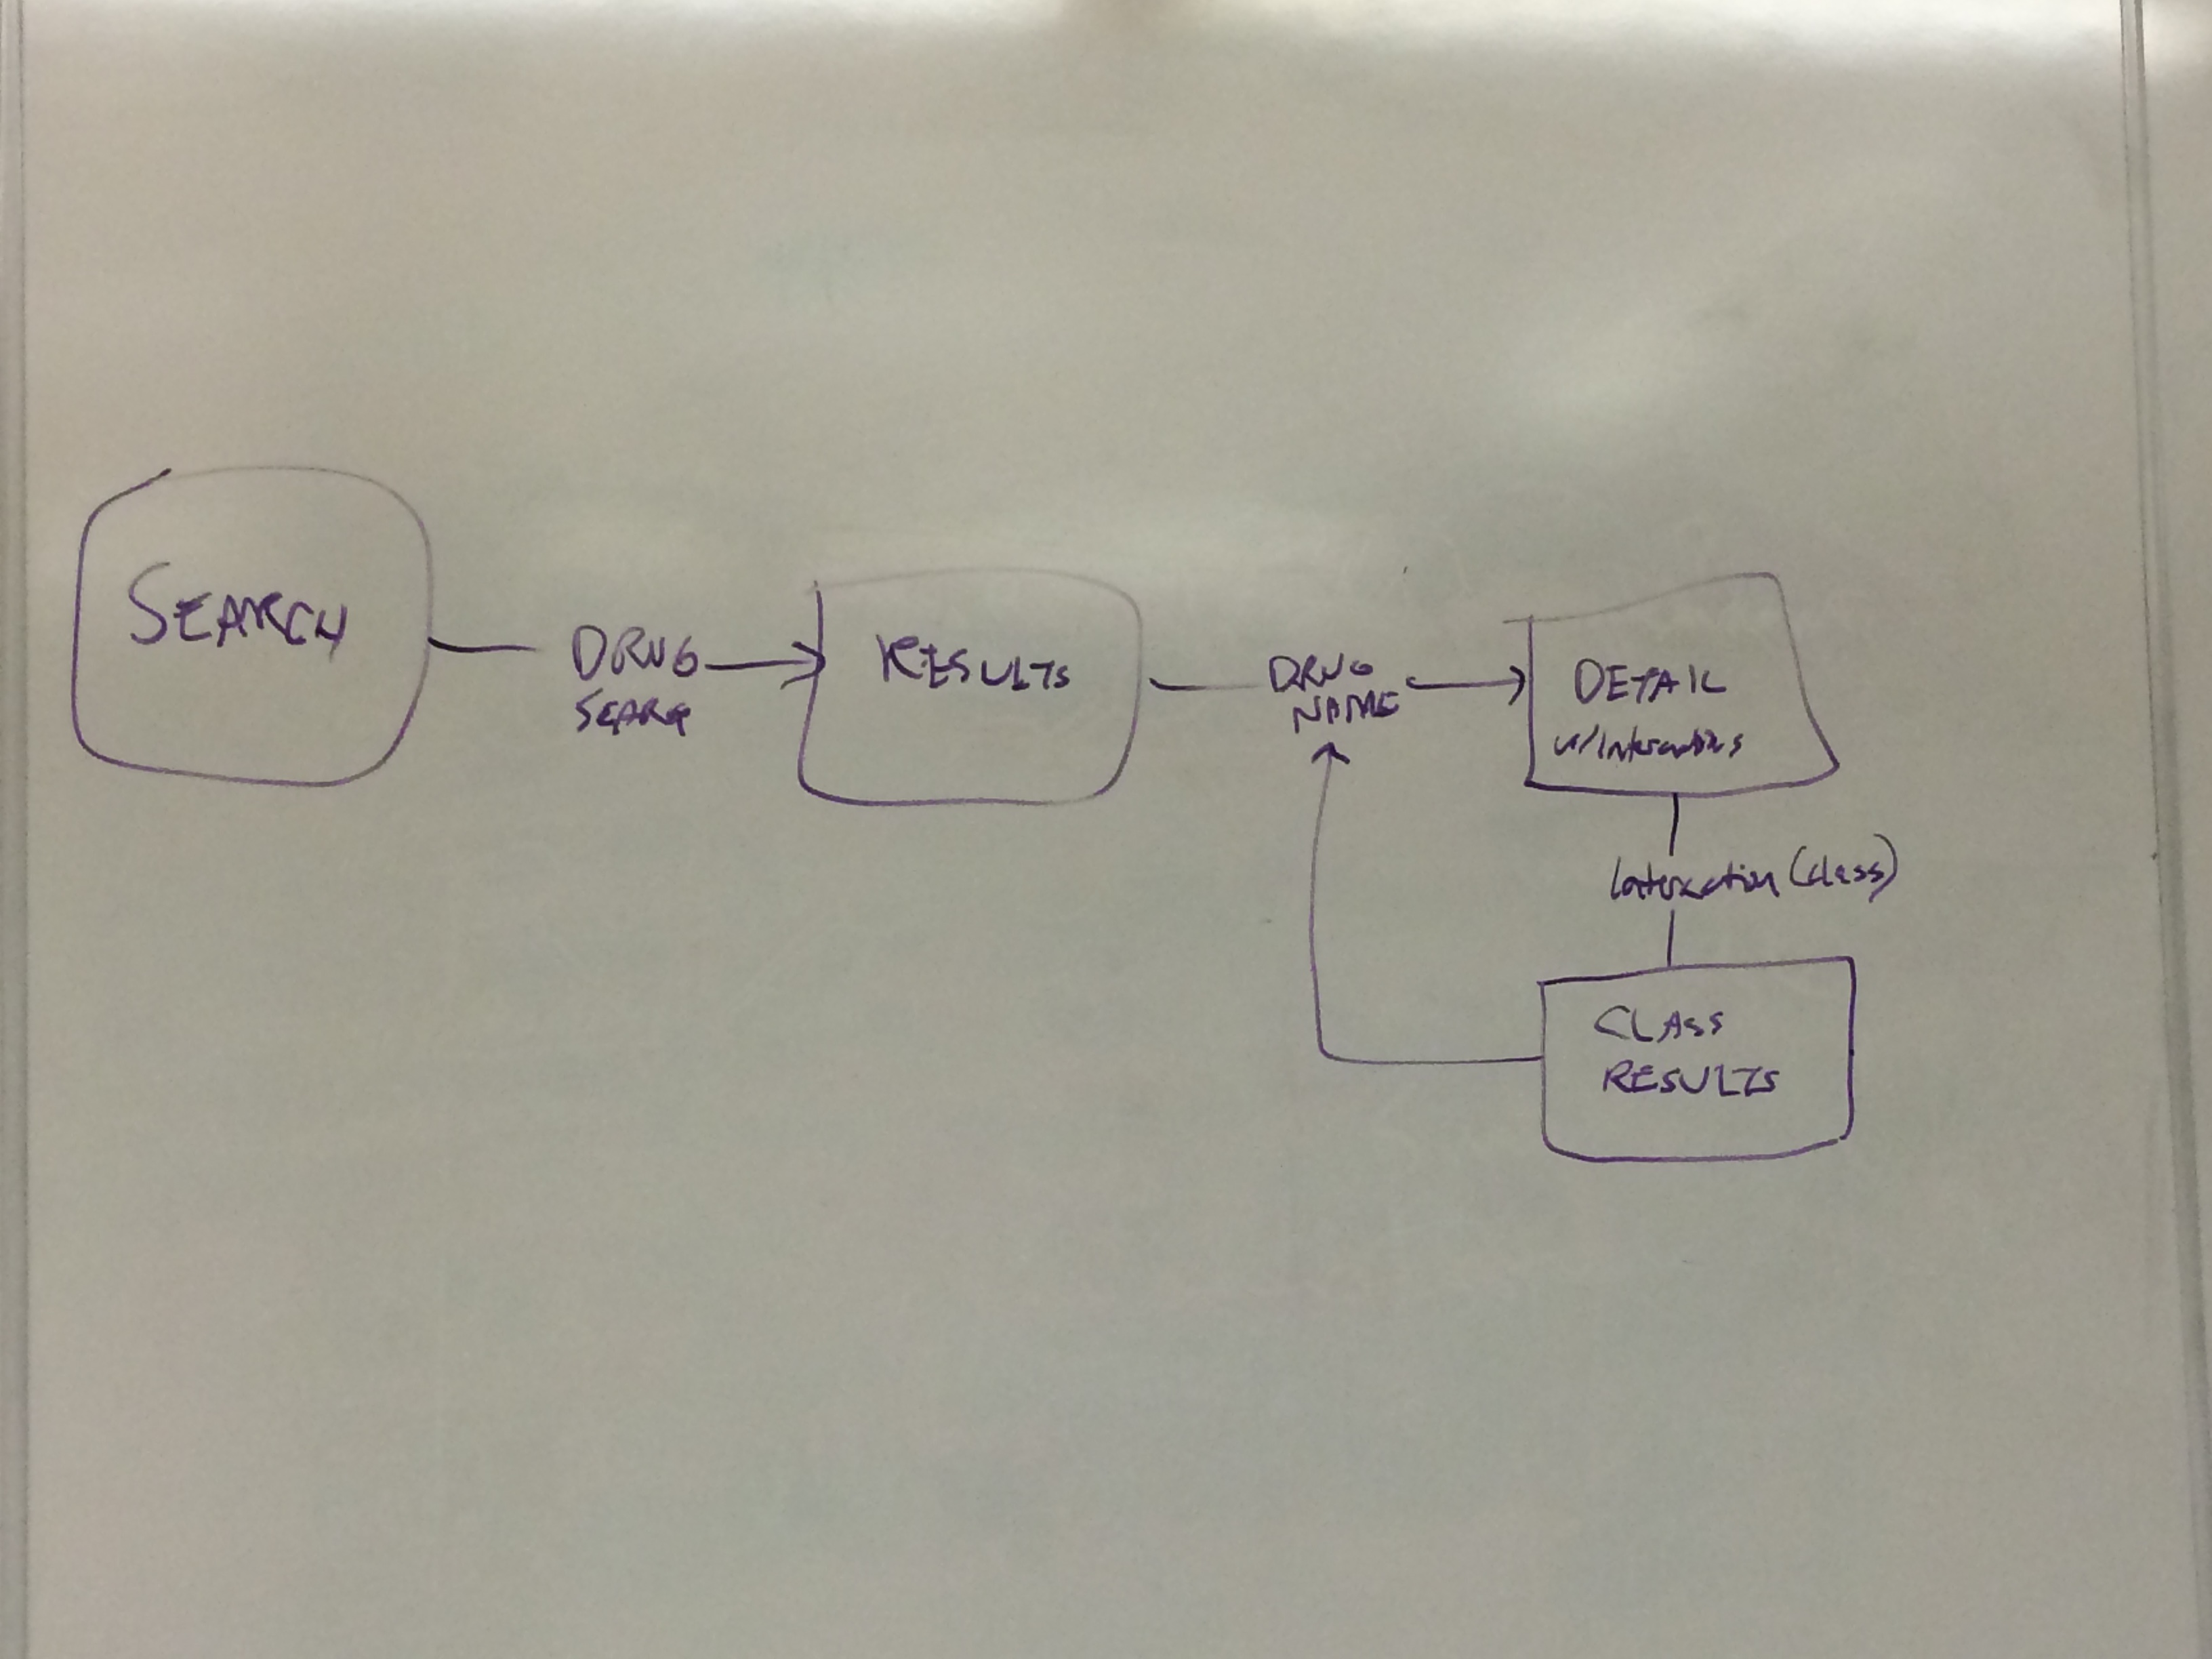 SEARCH
DRUG
SEARCH
RESULTS
DRUG
NAME
DETAIL
w/Interactions
Interaction (class)
CLASS
RESULTS